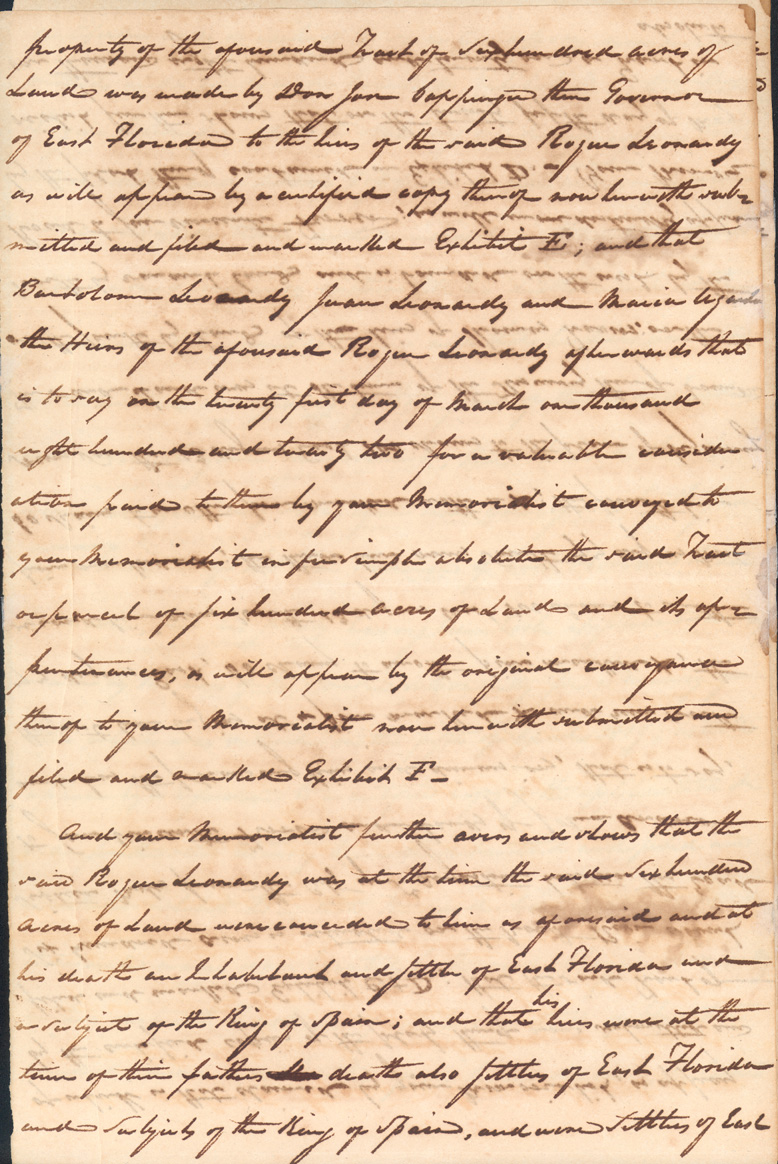 property of the aforesaid Tract of Six hundred acres of
Land was made by Don Jose Coppinger then Governor
of East Florida to the heirs of the said Roque Leonardy
as will appear by a certified copy thereof now herewith sub-
mitted and filed and marked Exhibit E; and that
Bartolome Leonardy Juan Leonardy and Maria Agueda
the Heirs of the aforesaid Roque Leonardy afterwards that
is to say on the twenty first day of March one thousand
eight hundred and twenty two for a valuable consider
ation paid to them by your Memorialist conveyed to
your Memorialist in fee simple absolute the said Tract
or parcel of six hundred acres of Land and its ap-
purtenances, as will appear by the original conveyance
thereof to your Memorialist now herewith submitted and
filed and marked Exhibit F—
And your Memorialist further avers and shows that the
said Roque Leonardy was at the time the said Six hundred
Acres of Land were conceded to him as aforesaid and at
his death an Inhabitant and settler of East Florida and
a Subject of the King of Spain; and that his heirs were at the
time of their fathers death also settlers of East Florida
and Subjects of the King of Spain, and were Settlers of East